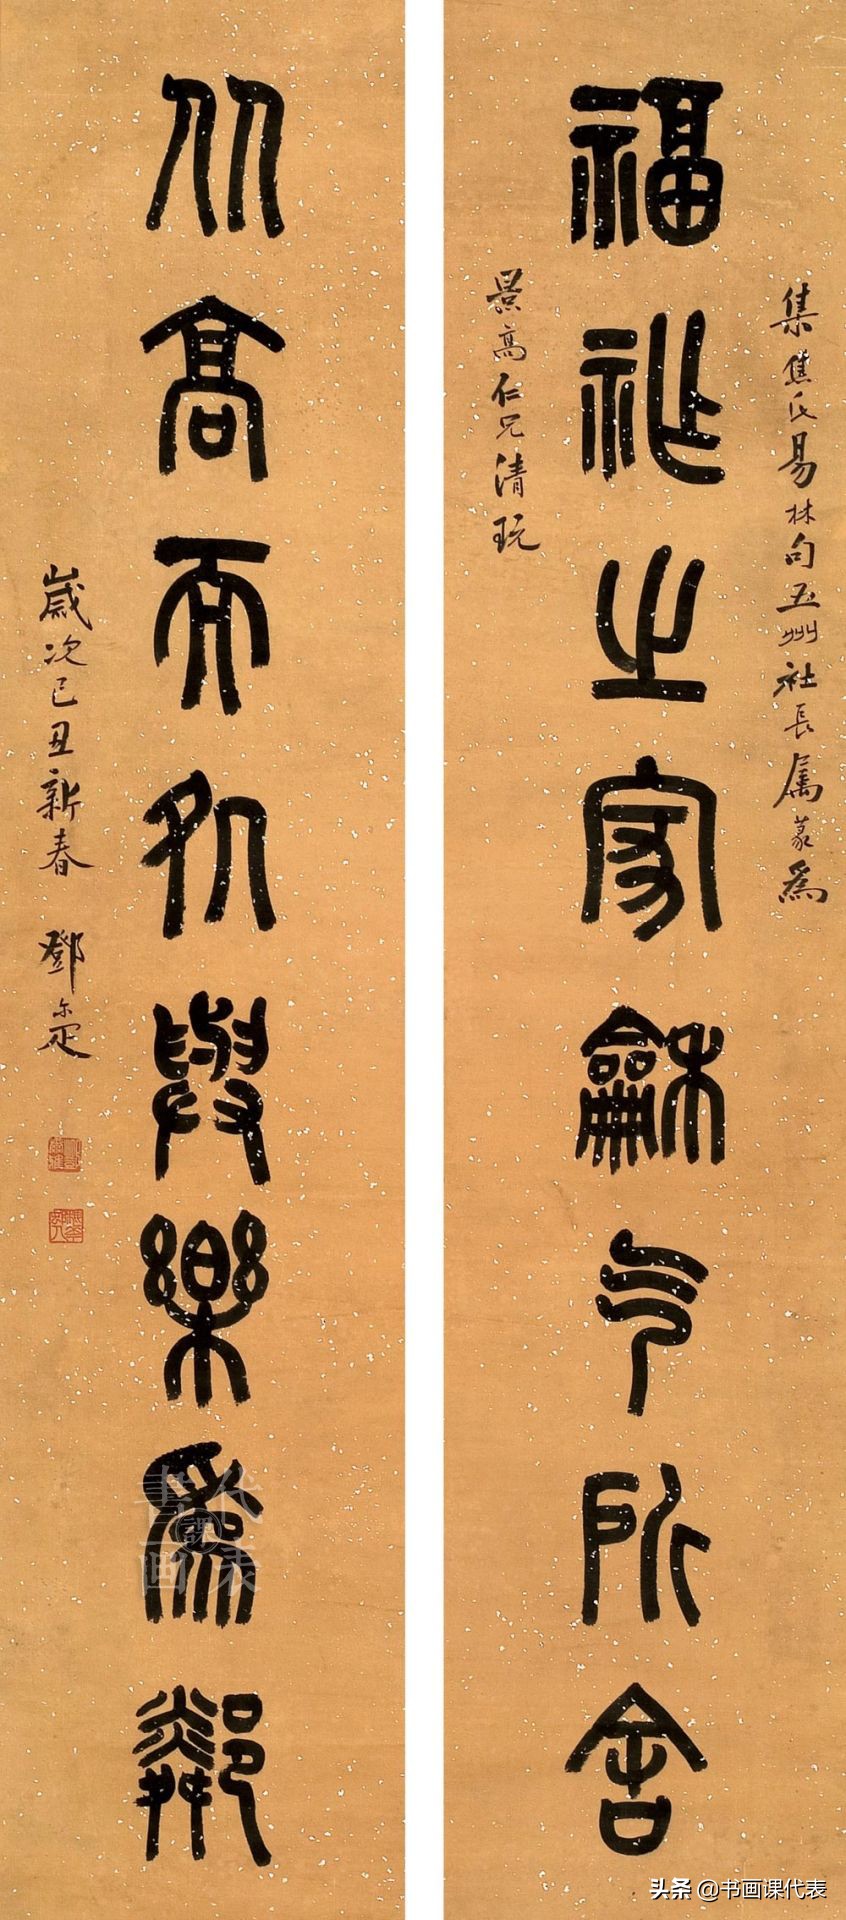 集焦氏易林句五州社長属篆為
福祉之家龢气所舍
景高仁兄清玩
从高而処與樂為鄰
歲次己丑新春 鄧尔疋
書画課代表
头条 @书画课代表